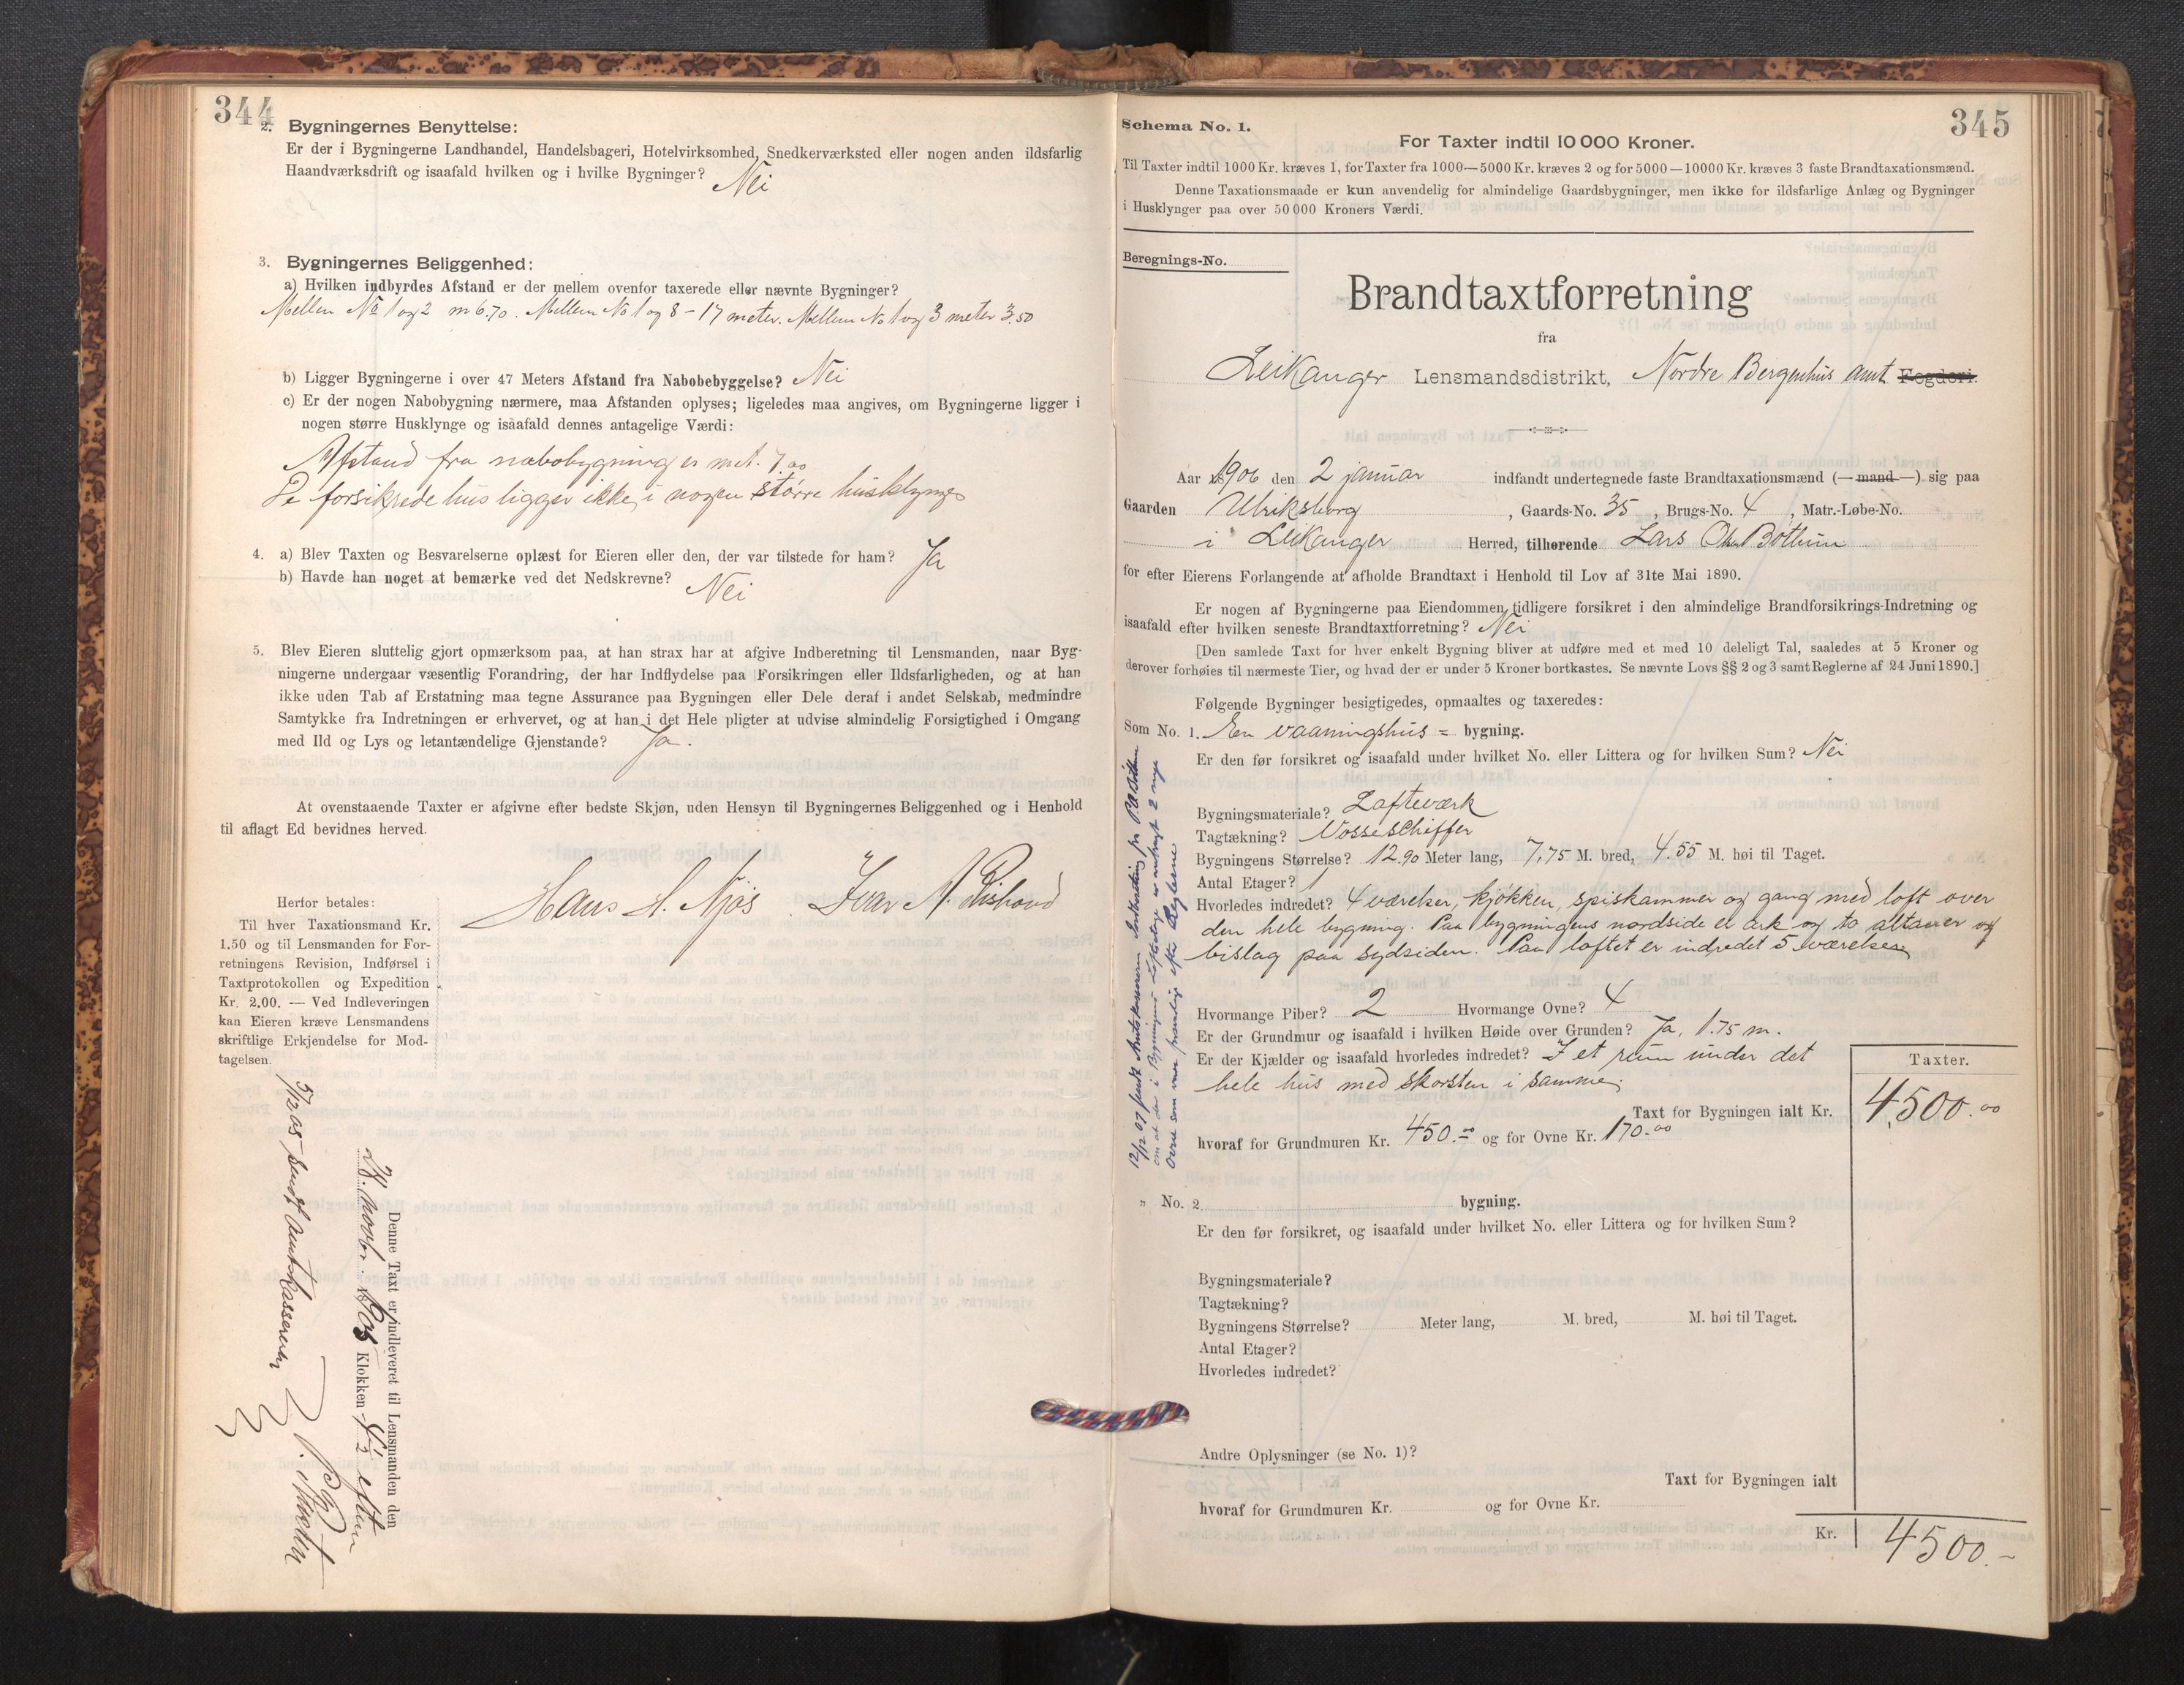 344
2. Bygningernes Benyttelse:
Er der i Bygningerne Landhandel, Handelsbageri, Hotelvirksomhed, Snedkerværksted eller nogen anden ildsfarlig
Haandværksdrift og isaafald hvilken og i hvilke Bygninger? Nei
3. Bygningernes Beliggenhed:
a) Hvilken indbyrdes Afstand er der mellem ovenfor taxerede eller nævnte Bygninger?
Mellem No 1 og 2 m 6.70. Mellem No 1 og 8 - 17 meter. Mellem No 1 og 3 meter 3.50
b) Ligger Bygningerne i over 47 Meters Afstand fra Nabobebyggelse? Nei
c) Er der nogen Nabobygning nærmere, maa Afstanden oplyses; ligeledes maa angives, om Bygningerne ligger i
nogen større Husklynge og isaafald dennes antagelige Værdi:
Afstand fra nabobygning er met. 7.00
De forsikrede hus ligger ikke i nogen større husklynge
4. a) Blev Taxten og Besvarelserne oplæst for Eieren eller den, der var tilstede for ham? Ja
b) Havde han noget at bemærke ved det Nedskrevne? Nei
5. Blev Eieren sluttelig gjort opmærksom paa, at han strax har at afgive Indberetning til Lensmanden, naar Byg-
ningerne undergaar væsentlig Forandring, der har Indflydelse paa Forsikringen eller Ildsfarligheden, og at han
ikke uden Tab af Erstatning maa tegne Assurance paa Bygningen eller Dele deraf i andet Selskab, medmindre
Samtykke fra Indretningen er erhvervet, og at han i det Hele pligter at udvise almindelig Forsigtighed i Omgang
med Ild og Lys og letantændelige Gjenstande? Ja.
At ovenstaaende Taxter er afgivne efter bedste Skjøn, uden Hensyn til Bygningernes Beliggenhed og i Henhold
til aflagt Ed bevidnes herved.
Hans A. Njøs. Ivar A.
Herfor betales:
Til hver Taxationsmand Kr.
1.50 og til Lensmanden for For-
retningens Revision, Indførsel i
Taxtprotokollen og Expedition
Kr. 2.00. — Ved Indleveringen
kan Eieren kræve Lensmandens
skriftlige Erkjendelse for Mod-
tagelsen.
Denne Taxt er indleveret til Lensmanden den
Klokken
5/12 05 sendt Amtskassereren
345
Schema No. 1.
For Taxter indtil 10 000 Kroner.
Til Taxter indtil 1000 Kr. kræves 1, for Taxter fra 1000—5000 Kr. kræves 2 og for 5000—10000 Kr. kræves 3 faste Brandtaxationsmænd.
Denne Taxationsmaade er kun anvendelig for almindelige Gaardsbygninger, men ikke for ildsfarlige Anlæg og Bygninger
i Husklynger paa over 50 000 Kroners Værdi.
Beregnings-No.
Brandtaxtforretning
fra
Leikanger Lensmandsdistrikt, Nordre Bergenhus amt Fogderi.
Aar 1906 den 2 januar indfandt undertegnede faste Brandtaxationsmænd (—mand—) sig paa
Gaarden Ulriksborg, Gaards-No. 35, Brugs-No. 4, Matr.-Løbe-No.
i Leikanger Herred, tilhørende Lars Bøthun
for efter Eierens Forlangende at afholde Brandtaxt i Henhold til Lov af 31te Mai 1890.
Er nogen af Bygningerne paa Eiendommen tidligere forsikret i den almindelige Brandforsikrings-Indretning og
isaafald efter hvilken seneste Brandtaxtforretning? Nei
[Den samlede Taxt for hver enkelt Bygning bliver at udføre med et med 10 deleligt Tal, saaledes at 5 Kroner og
derover forhøies til nærmeste Tier, og hvad der er under 5 Kroner bortkastes. Se nævnte Lovs §§ 2 og 3 samt Reglerne af 24 Juni 1890.]
Følgende Bygninger besigtigedes, opmaaltes og taxeredes:
Som No. 1. En vaaningshus = bygning.
Er den før forsikret og isaafald under hvilket No. eller Littera og for hvilken Sum? Nei
Bygningsmateriale? Lafteværk
Tagtækning? Vosseschiffer
Bygningens Størrelse? 12.90 Meter lang, 7,75 M. bred, 4.55 M. høi til Taget.
Antal Etager? 1
Hvorledes indredet? 4 værelser, kjøkken, spiskammer og gang med loft over
den hele bygning. Paa bygningens nordside et ark og to altaner og
bislag paa sydsiden. Paa loftet er indredet 5 værelser
Hvormange Piber? 2 Hvormange Ovne? 4
Er der Grundmur og isaafald i hvilken Høide over Grunden? Ja, 1.75 m.
Er der Kjælder og isaafald hvorledes indredet? I et rum under det
hele hus med skorsten i samme.
Taxter.
Taxt for Bygningen ialt Kr. 4,500.00
hvoraf for Grundmuren Kr. 450.00 og for Ovne Kr. 170.00
12/12 07 sendt Amtskassereren Indberetning fra
om at der i Bygningens er anbragt 2 nye
Ovne som efter Reglerne
" No. 2 bygning.
Er den før forsikret, og isaafald under hvilket No. eller Littera og for hvilken Sum?
Bygningsmateriale?
Tagtækning?
Bygningens Størrelse? Meter lang, M. bred, M. høi til Taget.
Antal Etager?
Hvorledes indredet?
Andre Oplysninger (se No. 1)?
Taxt for Bygningen ialt
hvoraf for Grundmuren Kr. og for Ovne Kr.
Kr. 4500.-